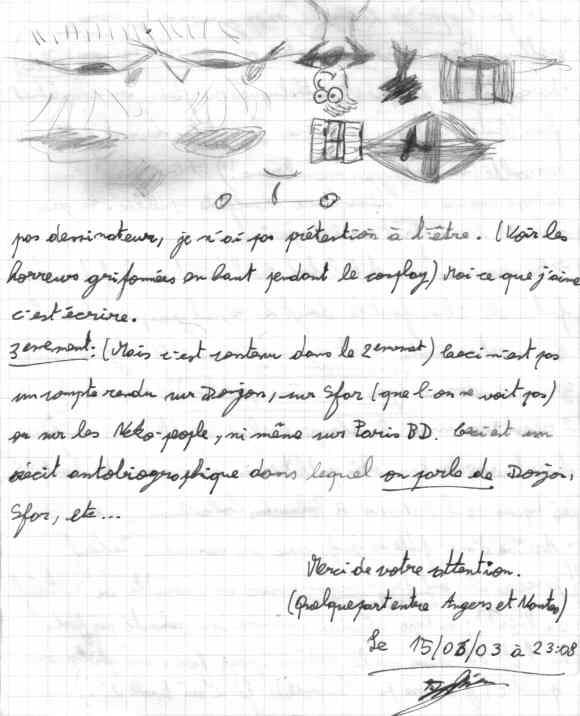 pas dessinateur, je n'ai pas prétention à l'être. (Voir les
horreurs grifonnées en haut pendant le cosplay) Moi ce que j'aime
c'est écrire.
3ement: (Mais c'est contenu dans le 2ement) Ceci n'est pas
un compte rendu sur Donjon, sur Sfar (que l'on ne voit pas)
ou sur les Neko-people, ni même sur Paris BD. Ceci est un
récit autobiographique dans lequel on parle de Donjon,
Sfar, etc...
Merci de votre attention.
(Quelquepart entre Angers et Nantes)
Le 15/03/03 à 23:08